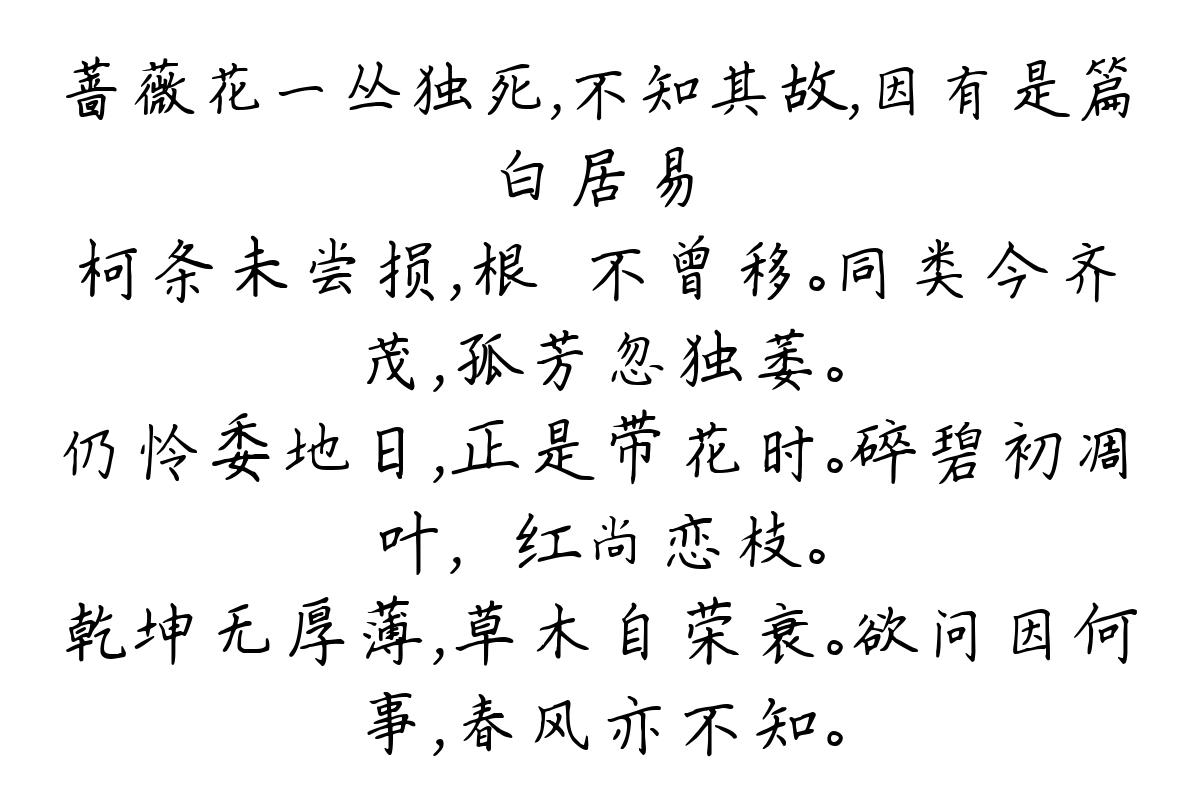 蔷薇花一丛独死,不知其故,因有是篇
白居易
柯条未尝损,根 不曾移。同类今齐
茂,孤芳忽独萎。
仍怜委地日,正是带花时。碎碧初凋
叶, 红尚恋枝。
乾坤无厚薄,草木自荣衰。欲问因何
事,春风亦不知。